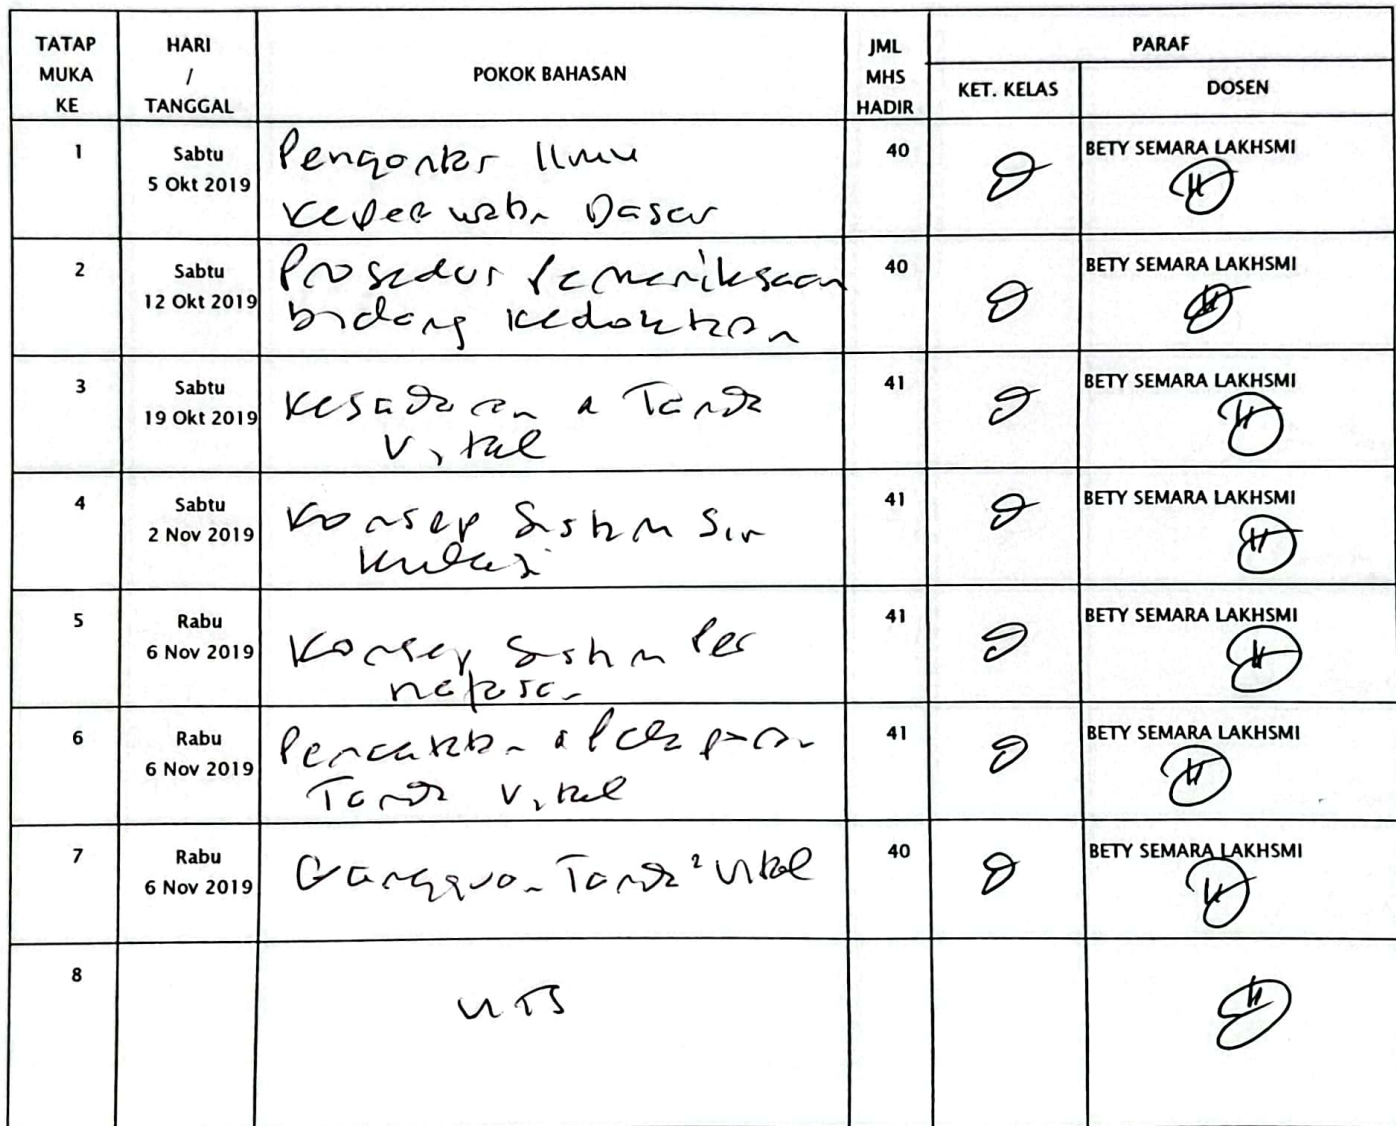 TATAP MUKA KE
HARI / TANGGAL
POKOK BAHASAN
JML MHS HADIR
PARAF
KET. KELAS
DOSEN
1
Sabtu
5 Okt 2019
Pengantar Ilmu
Keperawatan Dasar
40
BETY SEMARA LAKHSMI
2
Sabtu
12 Okt 2019
Prosedur Pemeriksaan
bidang kedokteran
40
BETY SEMARA LAKHSMI
3
Sabtu
19 Okt 2019
Kesadaran & Tanda
Vital
41
BETY SEMARA LAKHSMI
4
Sabtu
2 Nov 2019
Konsep Sistem Sir
kulasi
41
BETY SEMARA LAKHSMI
5
Rabu
6 Nov 2019
Konsep Sistem Per
napasan
41
BETY SEMARA LAKHSMI
6
Rabu
6 Nov 2019
Pencatatan & Pelaporan
Tanda Vital
41
BETY SEMARA LAKHSMI
7
Rabu
6 Nov 2019
Gangguan Tanda² Vital
40
BETY SEMARA LAKHSMI
8
UTS